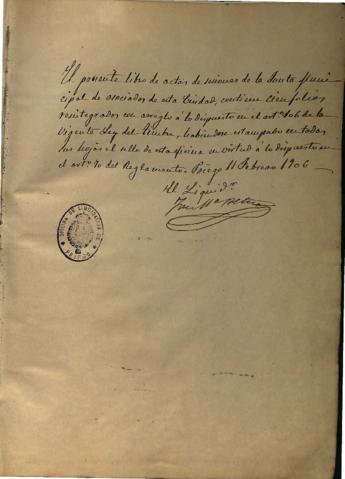 El presente libro de actas de sesiones de la Junta Muni-
cipal de asociados de esta Ciudad, contiene cien folios
reintegrados con arreglo á lo dispuesto en el artº 106 de la
vigente Ley del Timbre, habiendose estampado en todas
sus hojas el sello de esta oficina en virtud á lo dispuesto en
el artº 10 del Reglamento. Priego 11 Febrero 1906
El Liquidr.
OFICINA DE LIQUIDACION DE
PRIEGO